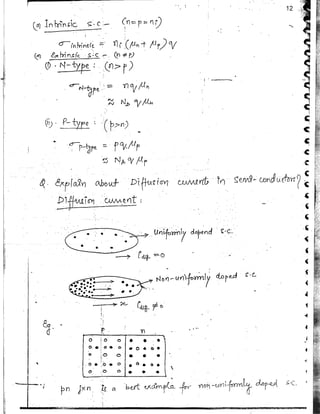 12
(a) Intrinsic S.C - (n = p = ni)
σ Intrinsic = ni (μn + μp) q
(b) Extrinsic S.C - (n ≠ p)
(i) N-type : (n > p)
σN-type = n q μn
≈ ND q μn
(ii) P-type : (p > n)
σP-type = p q μp
≈ NA q μp
Q. Explain about Diffusion current in Semi-conductors?
Diffusion current :
Uniformly depend S.C.
= 0
Non-uniformly doped S.C
x ≠ 0
Eg.
P n
pn jxn is a best example for non-uniformly doped S.C.